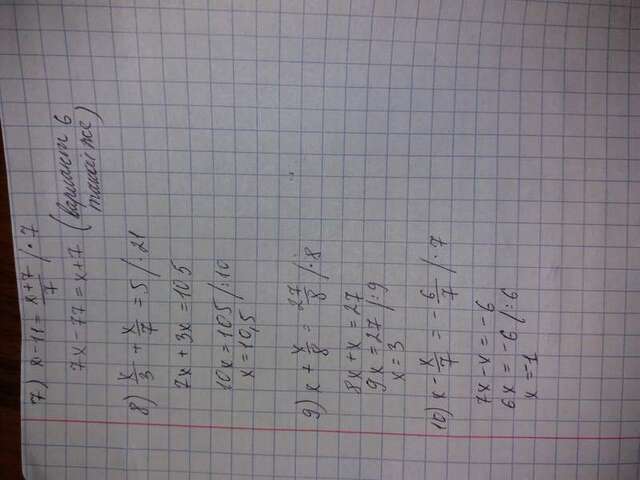 7) x-11 = x+7/7 /·7
7x-77 = x+7 (вариант 6
такой же)
8) x/3 + x/7 = 5 /·21
7x + 3x = 105
10x = 105 /:10
x = 10,5
9) x + x/8 = 27/8 /·8
8x + x = 27
9x = 27 /:9
x = 3
10) x - x/7 = - 6/7 /·7
7x - x = -6
6x = -6 /:6
x = -1